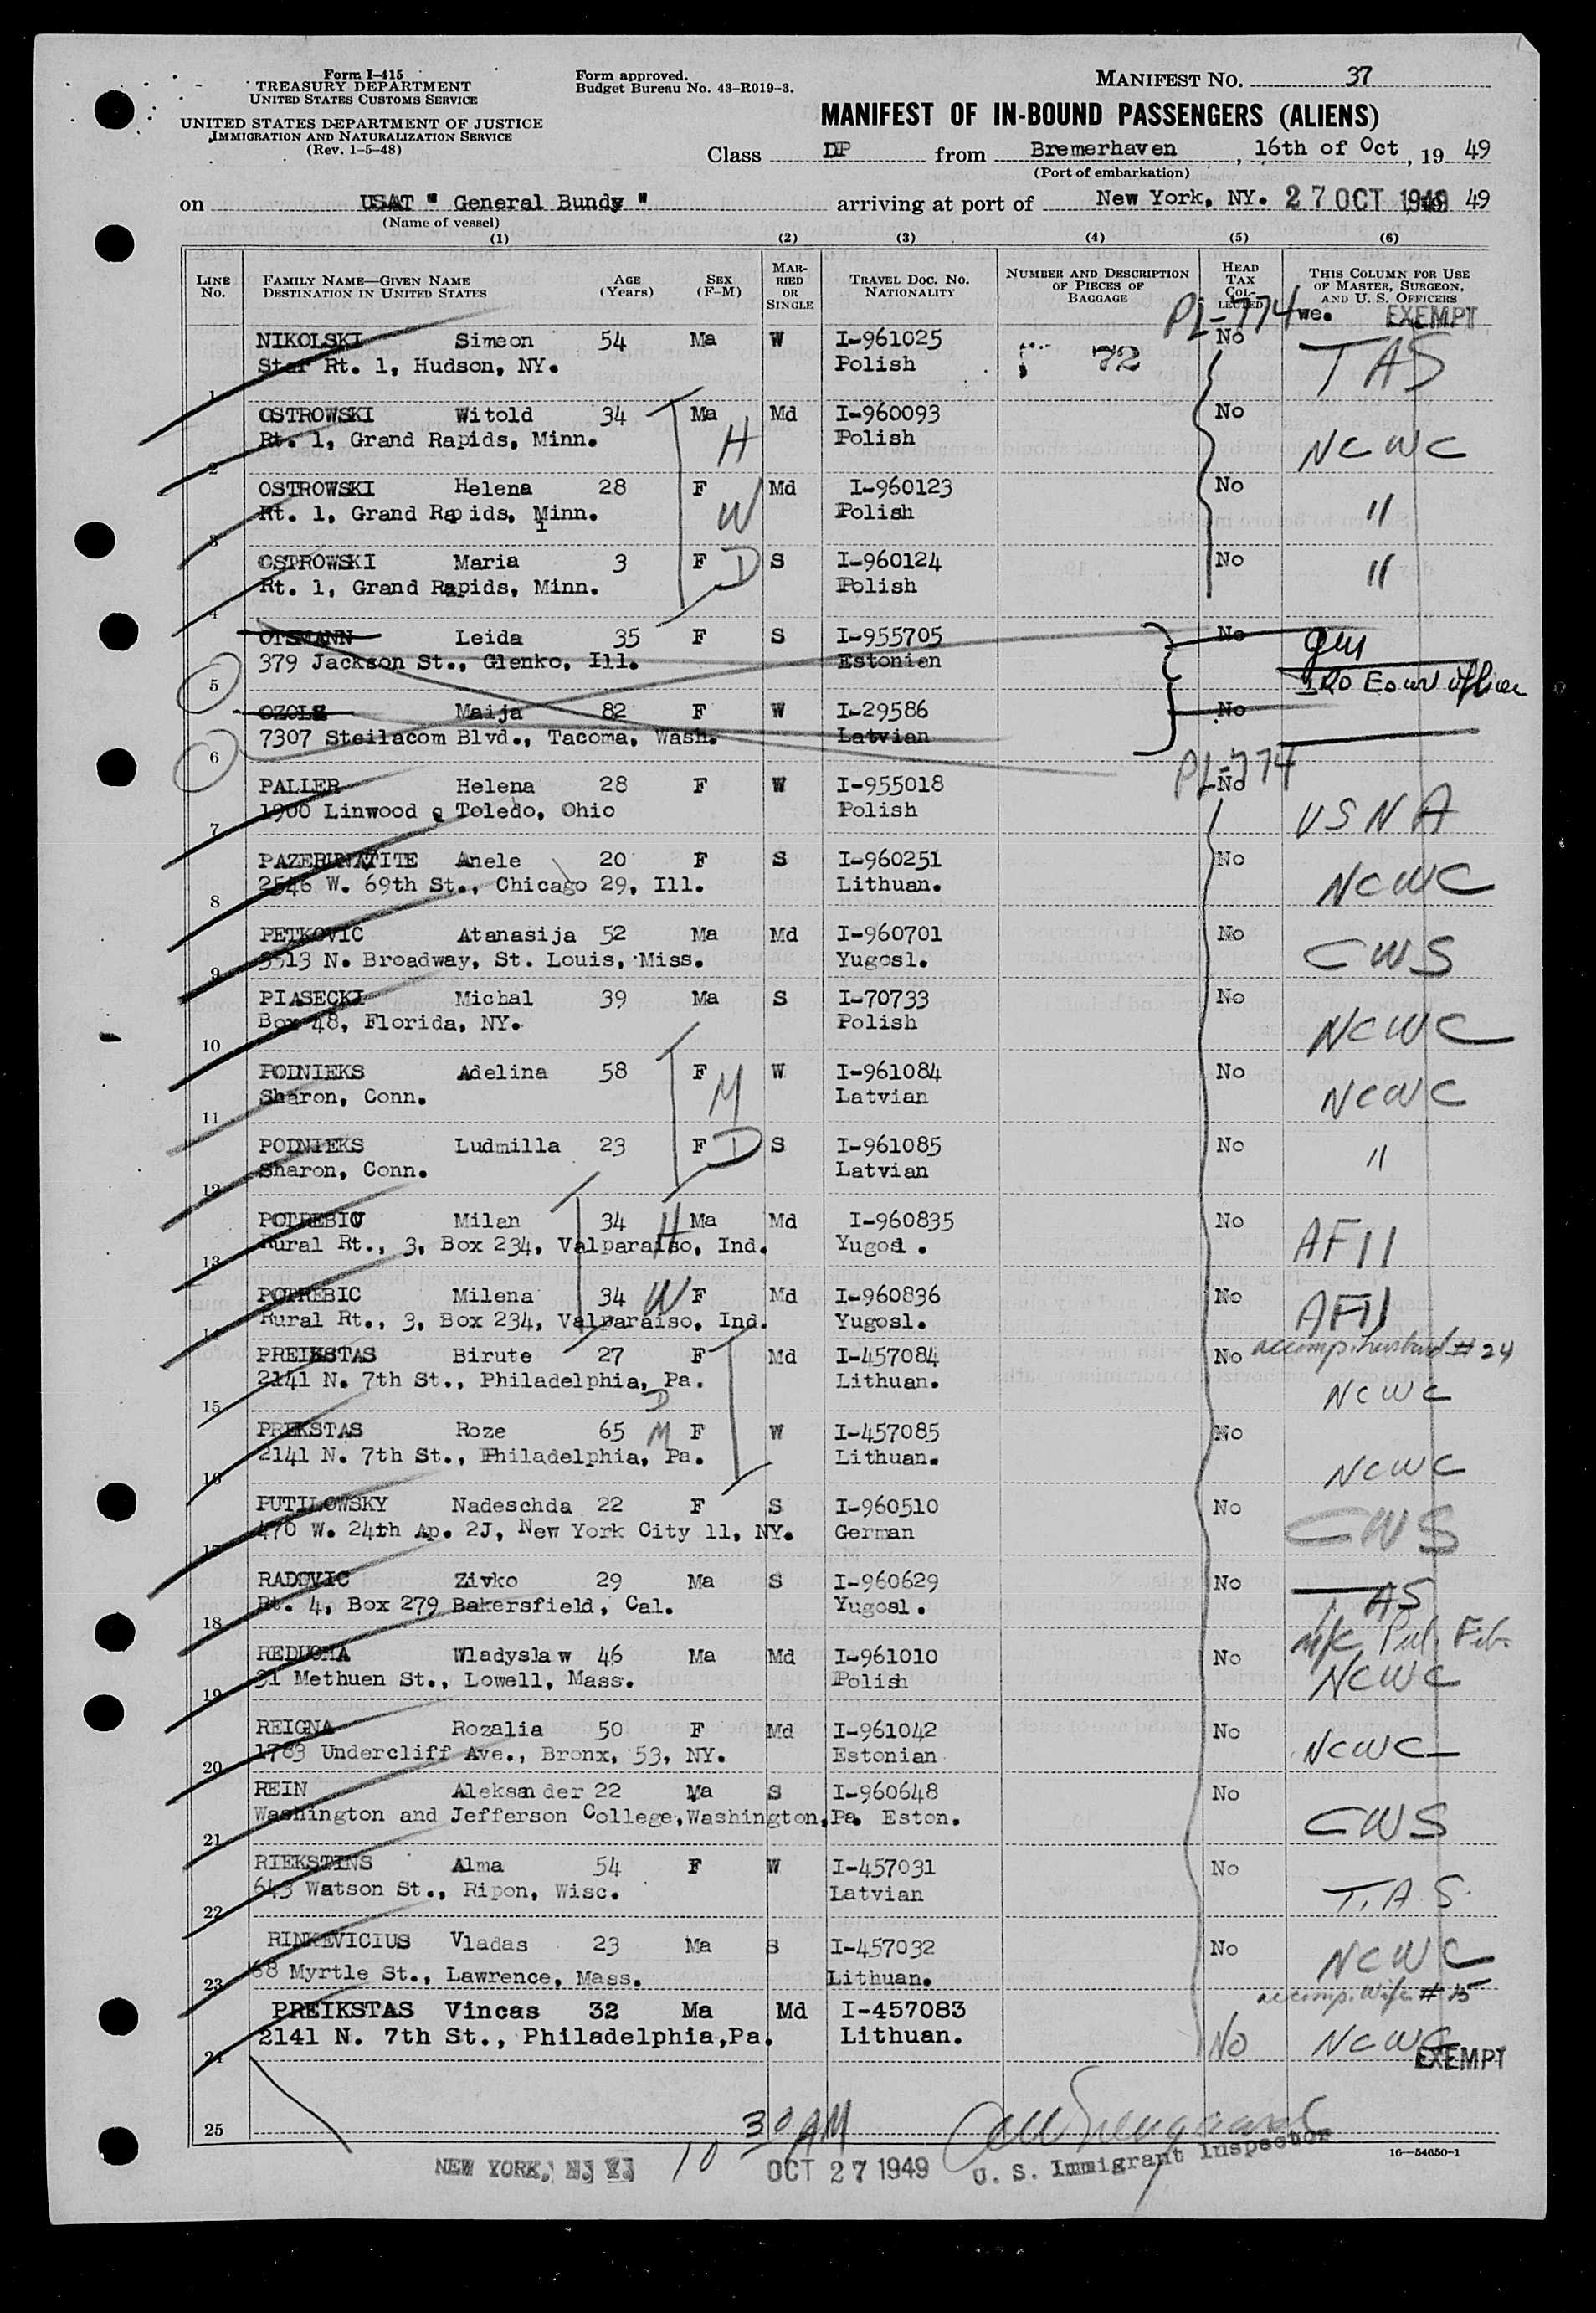 Form I-415
TREASURY DEPARTMENT
UNITED STATES CUSTOMS SERVICE
UNITED STATES DEPARTMENT OF JUSTICE
IMMIGRATION AND NATURALIZATION SERVICE
(Rev. 1-5-48)
Form approved.
Budget Bureau No. 43-R019-3.
MANIFEST NO. 37
MANIFEST OF IN-BOUND PASSENGERS (ALIENS)
Class DP from Bremerhaven, 16th of Oct, 19 49
(Port of embarkation)
on USAT " General Bundy " arriving at port of New York, NY. 27 OCT 1949 49
(Name of vessel)
(1) (2) (3) (4) (5) (6)
LINE No. FAMILY NAME—GIVEN NAME DESTINATION IN UNITED STATES AGE (Years) SEX (F-M) MARRIED OR SINGLE TRAVEL DOC. NO. NATIONALITY NUMBER AND DESCRIPTION OF PIECES OF BAGGAGE HEAD TAX COLLECTED THIS COLUMN FOR USE OF MASTER, SURGEON, AND U. S. OFFICERS
PL-774 we. EXEMPT
NIKOLSKI Simeon 54 Ma W I-961025 72 No TAS
1 Star Rt. 1, Hudson, NY. Polish
OSTROWSKI Witold 34 Ma Md I-960093 No
2 Rt. 1, Grand Rapids, Minn. H Polish NCWC
OSTROWSKI Helena 28 F Md I-960123 No
3 Rt. 1, Grand Rapids, Minn. W Polish "
OSTROWSKI Maria 3 F D S I-960124 No
4 Rt. 1, Grand Rapids, Minn. Polish "
OTSMANN Leida 35 F S I-955705 No
5 379 Jackson St., Glenko, Ill. Estonien IRO Escort Officer
OZOLS Maija 82 F W I-29586 No
6 7307 Steilacom Blvd., Tacoma, Wash. Latvian
PL-774
PALLER Helena 28 F W I-955018 No
7 1900 Linwood Toledo, Ohio Polish USNA
PAZERUNAITITE Anele 20 F S I-960251 No
8 2546 W. 69th St., Chicago 29, Ill. Lithuan. NCWC
PETKOVIC Atanasija 52 Ma Md I-960701 No
9 3513 N. Broadway, St. Louis, Miss. Yugosl. CWS
PIASECKI Michal 39 Ma S I-70733 No
10 Box 48, Florida, NY. Polish NCWC
PODNIEKS Adelina 58 F W I-961084 No
11 Sharon, Conn. M Latvian NCWC
PODNIEKS Ludmilla 23 F D S I-961085 No
12 Sharon, Conn. Latvian "
POTREBIC Milan 34 H Ma Md I-960835 No
13 Rural Rt., 3, Box 234, Valparaiso, Ind. Yugosl. AFII
POTREBIC Milena 34 W F Md I-960836 No
14 Rural Rt., 3, Box 234, Valparaiso, Ind. Yugosl. AFII
PREIKSTAS Birute 27 F Md I-457084 No accomp. husband # 24
15 2141 N. 7th St., Philadelphia, Pa. D Lithuan. NCWC
PREKSTAS Roze 65 M F W I-457085 No
16 2141 N. 7th St., Philadelphia, Pa. Lithuan. NCWC
PUTILOWSKY Nadeschda 22 F S I-960510 No
17 470 W. 24th Ap. 2J, New York City 11, NY. German CWS
RADOVIC Zivko 29 Ma S I-960629 No
18 Rt. 4, Box 279 Bakersfield, Cal. Yugosl. TAS
REDUCHA Wladyslaw 46 Ma Md I-961010 No
19 31 Methuen St., Lowell, Mass. Polish NCWC
REIGNA Rozalia 50 F Md I-961042 No
20 1783 Undercliff Ave., Bronx, 53, NY. Estonian NCWC
REIN Aleksander 22 Ma S I-960648 No
21 Washington and Jefferson College, Washington, Pa. Eston. CWS
RIEKSTINS Alma 54 F W I-457031 No
22 643 Watson St., Ripon, Wisc. Latvian T.A.S.
RINKEVICIUS Vladas 23 Ma S I-457032 No
23 68 Myrtle St., Lawrence, Mass. Lithuan. NCWC
PREIKSTAS Vincas 32 Ma Md I-457083 accomp. wife # 15
24 2141 N. 7th St., Philadelphia, Pa. Lithuan. No NCWC
EXEMPT
25
10 30 AM
16—54650-1
NEW YORK, N. Y. OCT 27 1949 U. S. Immigrant Inspector